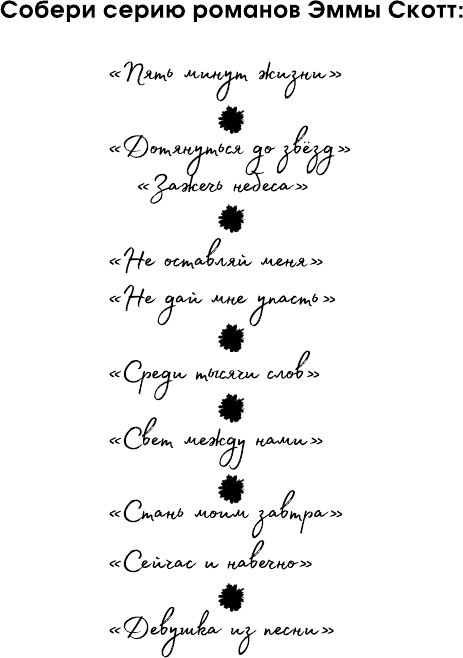 Собери серию романов Эммы Скотт:
«Пять минут жизни»
«Дотянуться до звёзд»
«Зажечь небеса»
«Не оставляй меня»
«Не дай мне упасть»
«Среди тысячи слов»
«Свет между нами»
«Стань моим завтра»
«Сейчас и навечно»
«Девушка из песни»